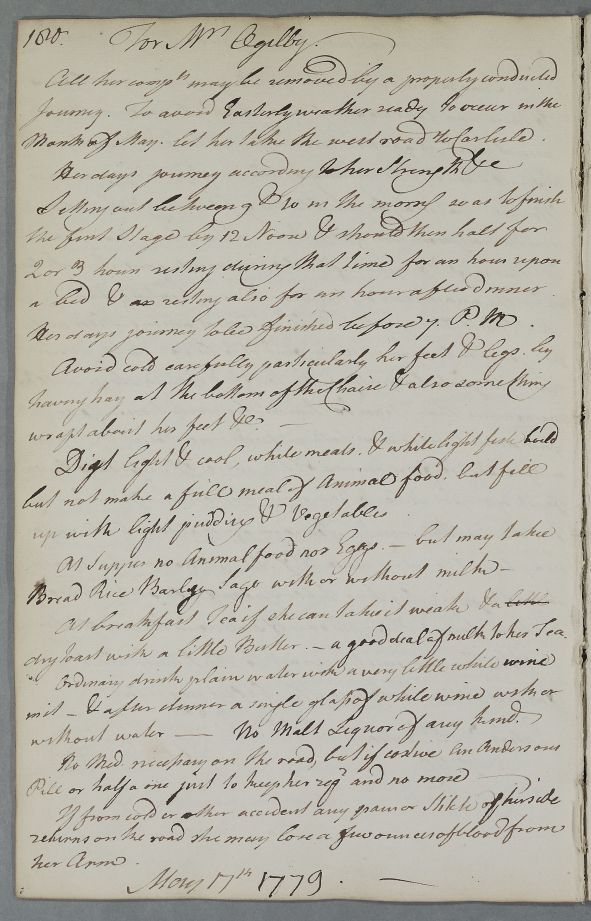 180. For Mrs Ogilby.
All her compts may be removed by a properly conducted
Journey. To avoid Easterly weather ready to occur in the
Month of May. let her take the west road to Carlisle.
Her days journey according to her Strength &c
Setting out between 9 & 10 in the morng so as to finish
the first Stage by 12 Noon & should then halt for
2 or 3 hours resting during that time for an hour upon
a bed & resting also for an hour after dinner
Her days journey to be finished before 7. P.M.
Avoid cold carefully particularly her feet & legs. by
having hay at the bottom of the Chaise & also something
wrapt about her feet &c. —
Diet light & cool, white meats. & white light fish boild
but not make a full meal of Animal food. but fill
up with light pudding & Vegetables.
At Supper no Animal food nor Eggs. — but may take
Bread Rice Barley Sago with or without milk —
At breakfast Tea if she can take it weak & a little
dry toast with a little Butter. — a good deal of milk to her Tea
Ordinary drink plain water with a very little white wine
mixt — & after dinner a single glass of white wine with or
without water — No Malt Liquor of any kind.
No Med. necessary on the road, but if costive an Andersons
Pill or half a one just to keep her regr and no more
If from cold or other accident any pain or Stitch of her side
returns on the road she may lose a few ounces of blood from
her Arm.
May 17th 1779. —